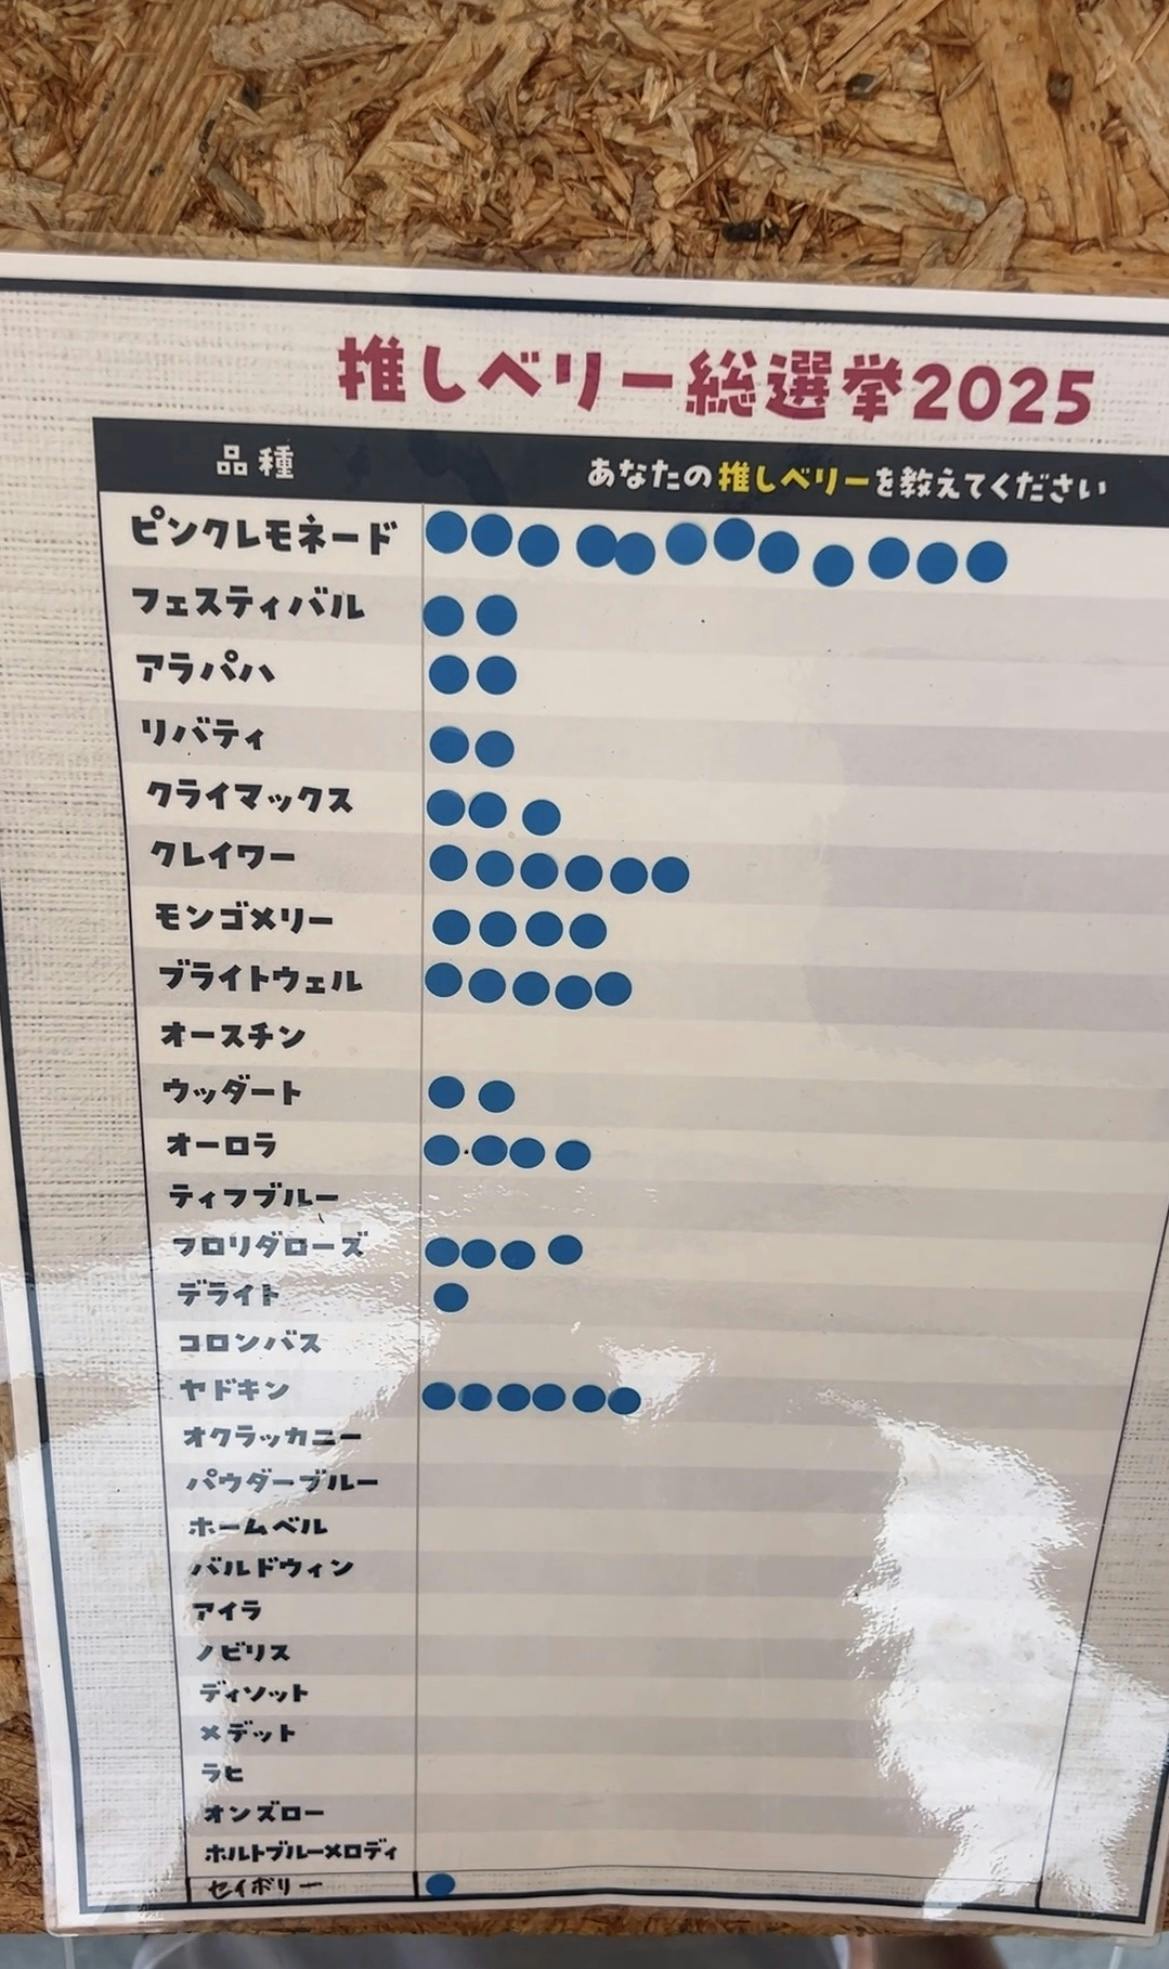 推しベリー総選挙2025
品種 あなたの推しベリーを教えてください
ピンクレモネード
フェスティバル
アラパハ
リバティ
クライマックス
クレイワー
モンゴメリー
ブライトウェル
オースチン
ウッダート
オーロラ
ティフブルー
フロリダローズ
デライト
コロンバス
ヤドキン
オクラッカニー
パウダーブルー
ホームベル
バルドウィン
アイラ
ノビリス
ディソット
メデット
ラヒ
オンズロー
ホルトブルーメロディ
セイボリー